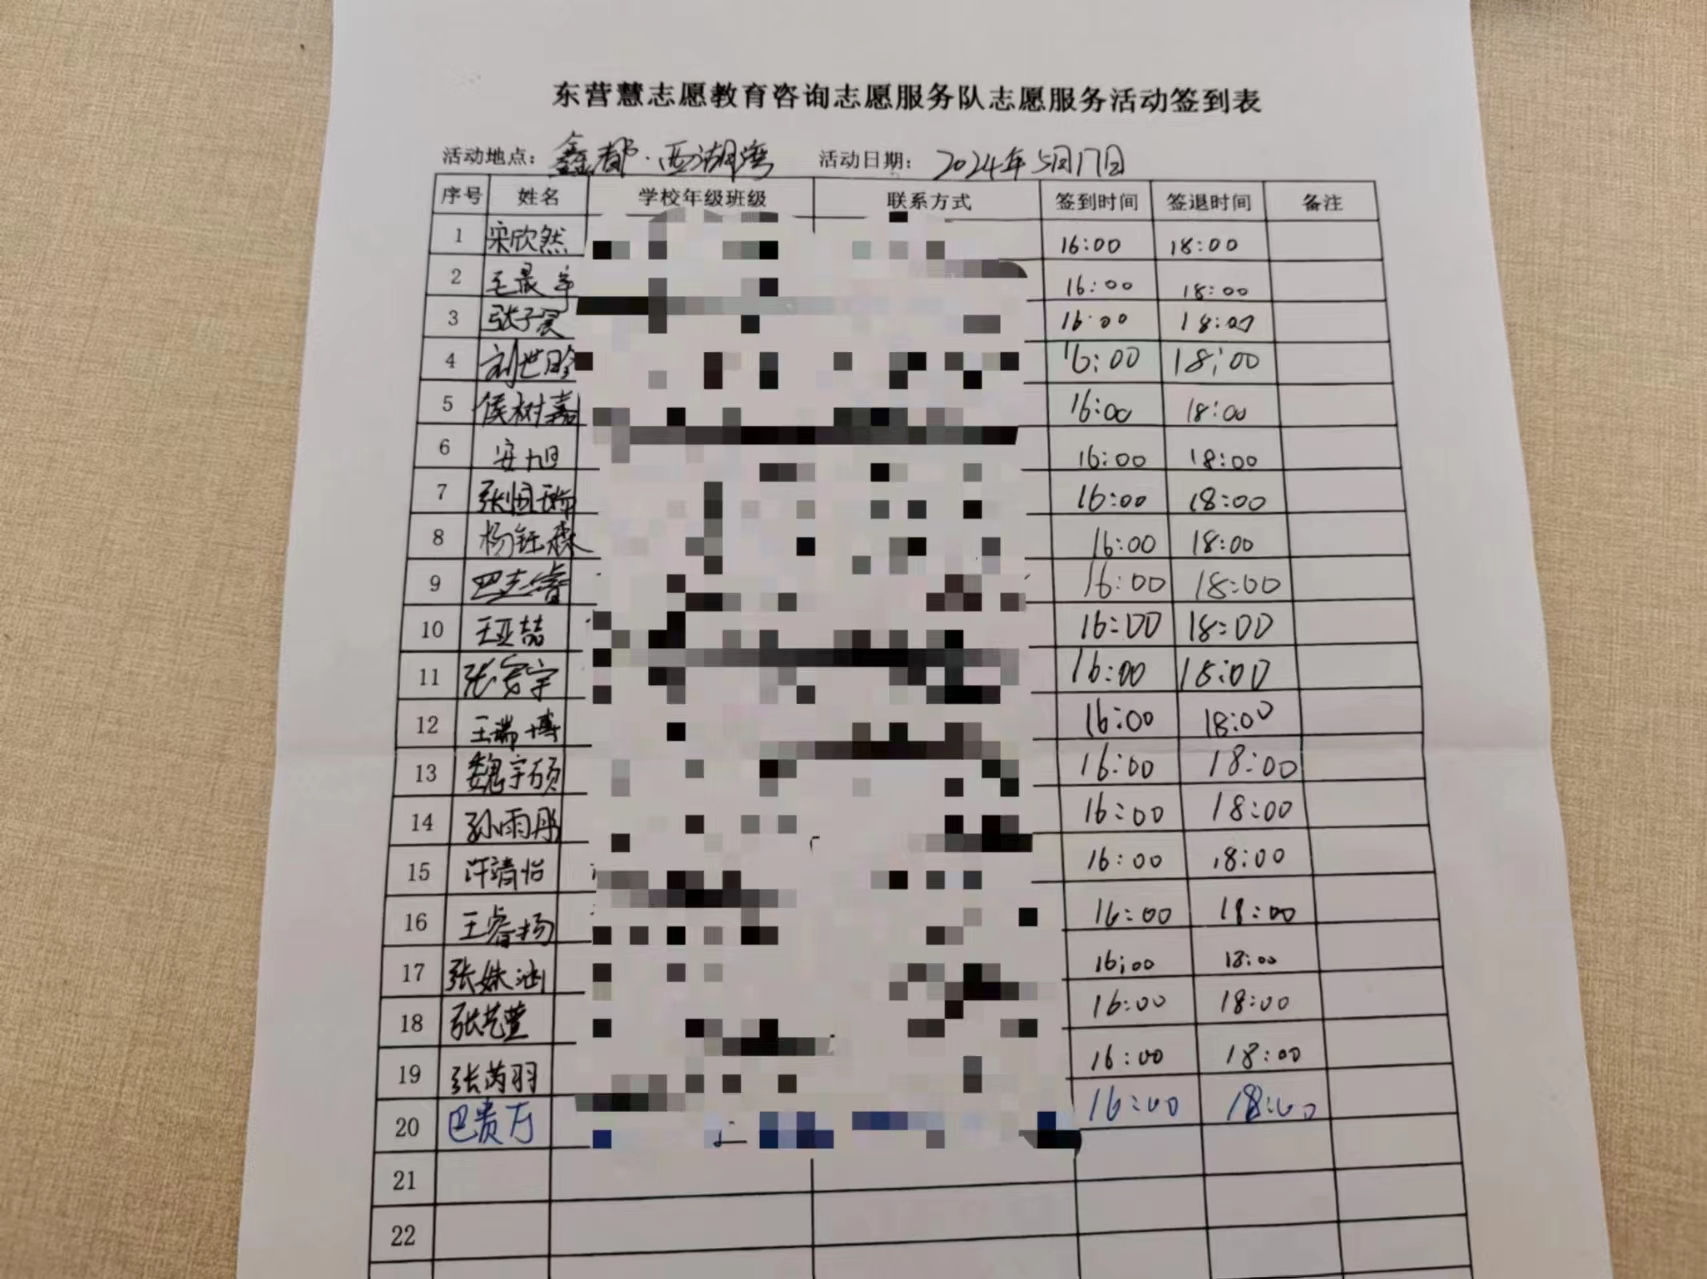 东营慧志愿教育咨询志愿服务队志愿服务活动签到表
活动地点：鑫都·西湖湾 活动日期：2024年5月17日
序号 姓名 学校年级班级 联系方式 签到时间 签退时间 备注
1 宋欣然 16:00 18:00
2 16:00 18:00
3 16:00 18:00
4 刘世晗 16:00 18:00
5 侯树嘉 16:00 18:00
6 安旭 16:00 18:00
7 16:00 18:00
8 杨钰森 16:00 18:00
9 巴志睿 16:00 18:00
10 王亚喆 16:00 18:00
11 16:00 18:00
12 王瑞博 16:00 18:00
13 魏宇硕 16:00 18:00
14 孙雨彤 16:00 18:00
15 许靖怡 16:00 18:00
16 王睿扬 16:00 18:00
17 张姝涵 16:00 18:00
18 张艺萱 16:00 18:00
19 张芮羽 16:00 18:00
20 巴贵方 16:00 18:00
21
22